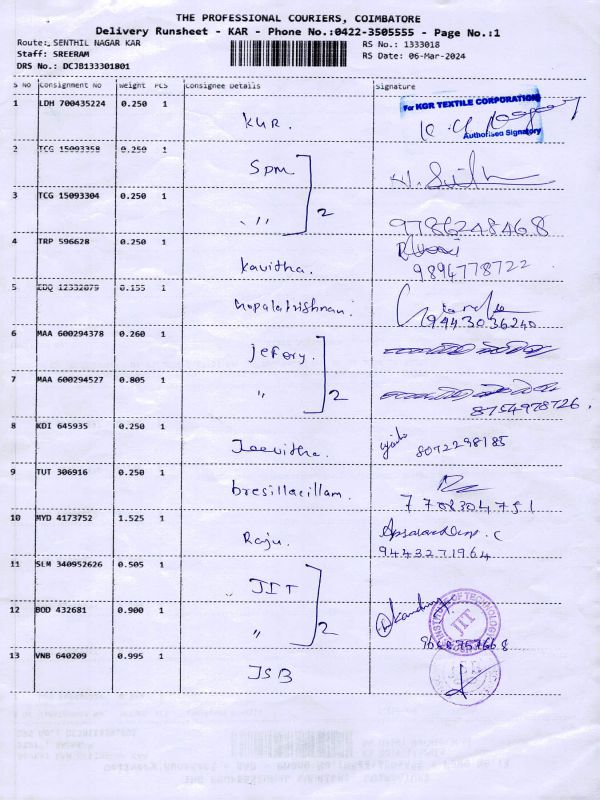 THE PROFESSIONAL COURIERS, COIMBATORE
Delivery Runsheet - KAR - Phone No.:0422-3505555 - Page No.:1
Route: SENTHIL NAGAR KAR
RS No.: 1333018
Staff: SREERAM
RS Date: 06-Mar-2024
DRS No.: DCJB133301801
S No Consignment No Weight PCS Consignee Details Signature
1 LDH 700435224 0.250 1 KUR.
For KGR TEXTILE CORPORATION
Authorised Signatory
2 TCG 15093358 0.250 1 Spm
3 TCG 15093304 0.250 1 〃 2 9786248468
4 TRP 596628 0.250 1 Kavitha. 9894778722
5 EDQ 12332079 0.155 1 Gopalakrishnan 9443036240
6 MAA 600294378 0.260 1 jefory.
7 MAA 600294527 0.805 1 〃 2 8754978726.
8 KDI 645935 0.250 1 8072298185
9 TUT 306916 0.250 1 bresillacillam. 7708304751
10 MYD 4173752 1.525 1 Raju. 9443271964
11 SLM 340952626 0.505 1 JIT
12 BOD 432681 0.900 1 〃 2
INSTITUTE OF TECHNOLOGY
JIT
13 VNB 640209 0.995 1 JSB